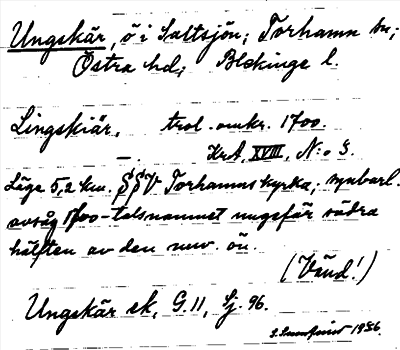 Ungskär, ö i Saltsjön; Torhamn sn;
Östra hd; Blekinge l.
Lingskiär, trol. omkr. 1700.
—. KrA, XVIII, N:o 3.
Läge 5,2 km. SSV Torhamns kyrka; uppenbarl.
avsåg 1700-talsnamnet ungefär södra
hälften av den nuv. ön.
(Vänd!)
Ungskär ek, G.11, Sj. 96.
1956.